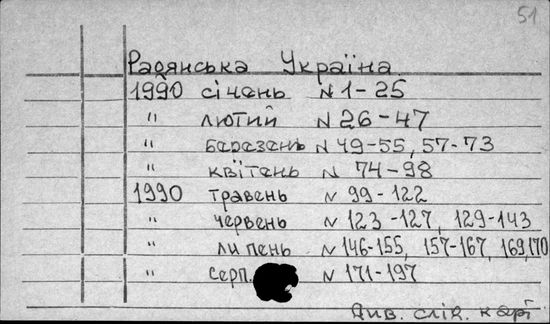 51
Радянська Україна
1990 січень N 1-25
" лютий N 26-47
" березень N 49-55, 57-73
" квітень N 74-98
1990 травень N 99-122
" червень N 123-127, 129-143
" липень N 146-155, 157-167, 169,170
" серп. N 171-197
Див. слід. карт